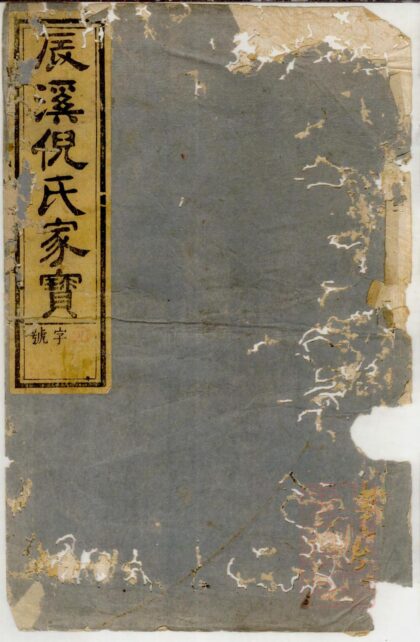 辰溪倪氏家寶
字號